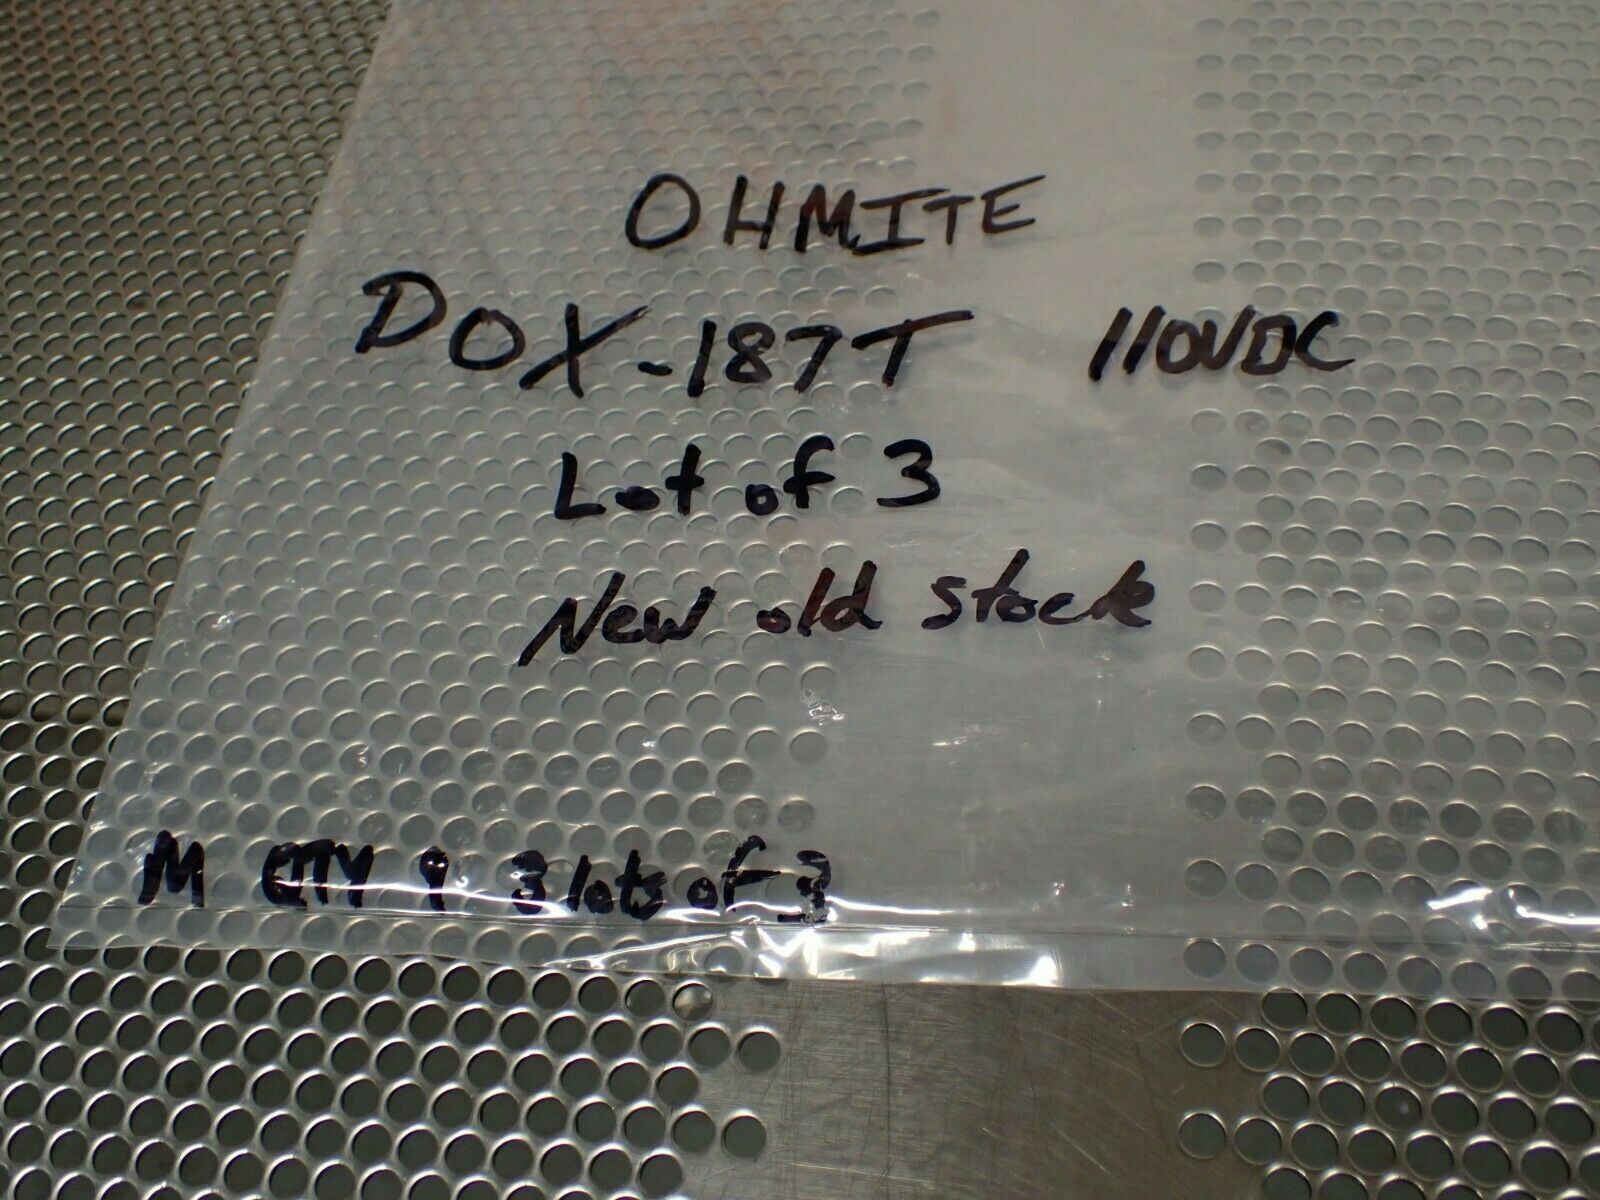 OHMITE
DOX-187T 110VDC
Lot of 3
New old stock
M QTY 9 3 lots of 3